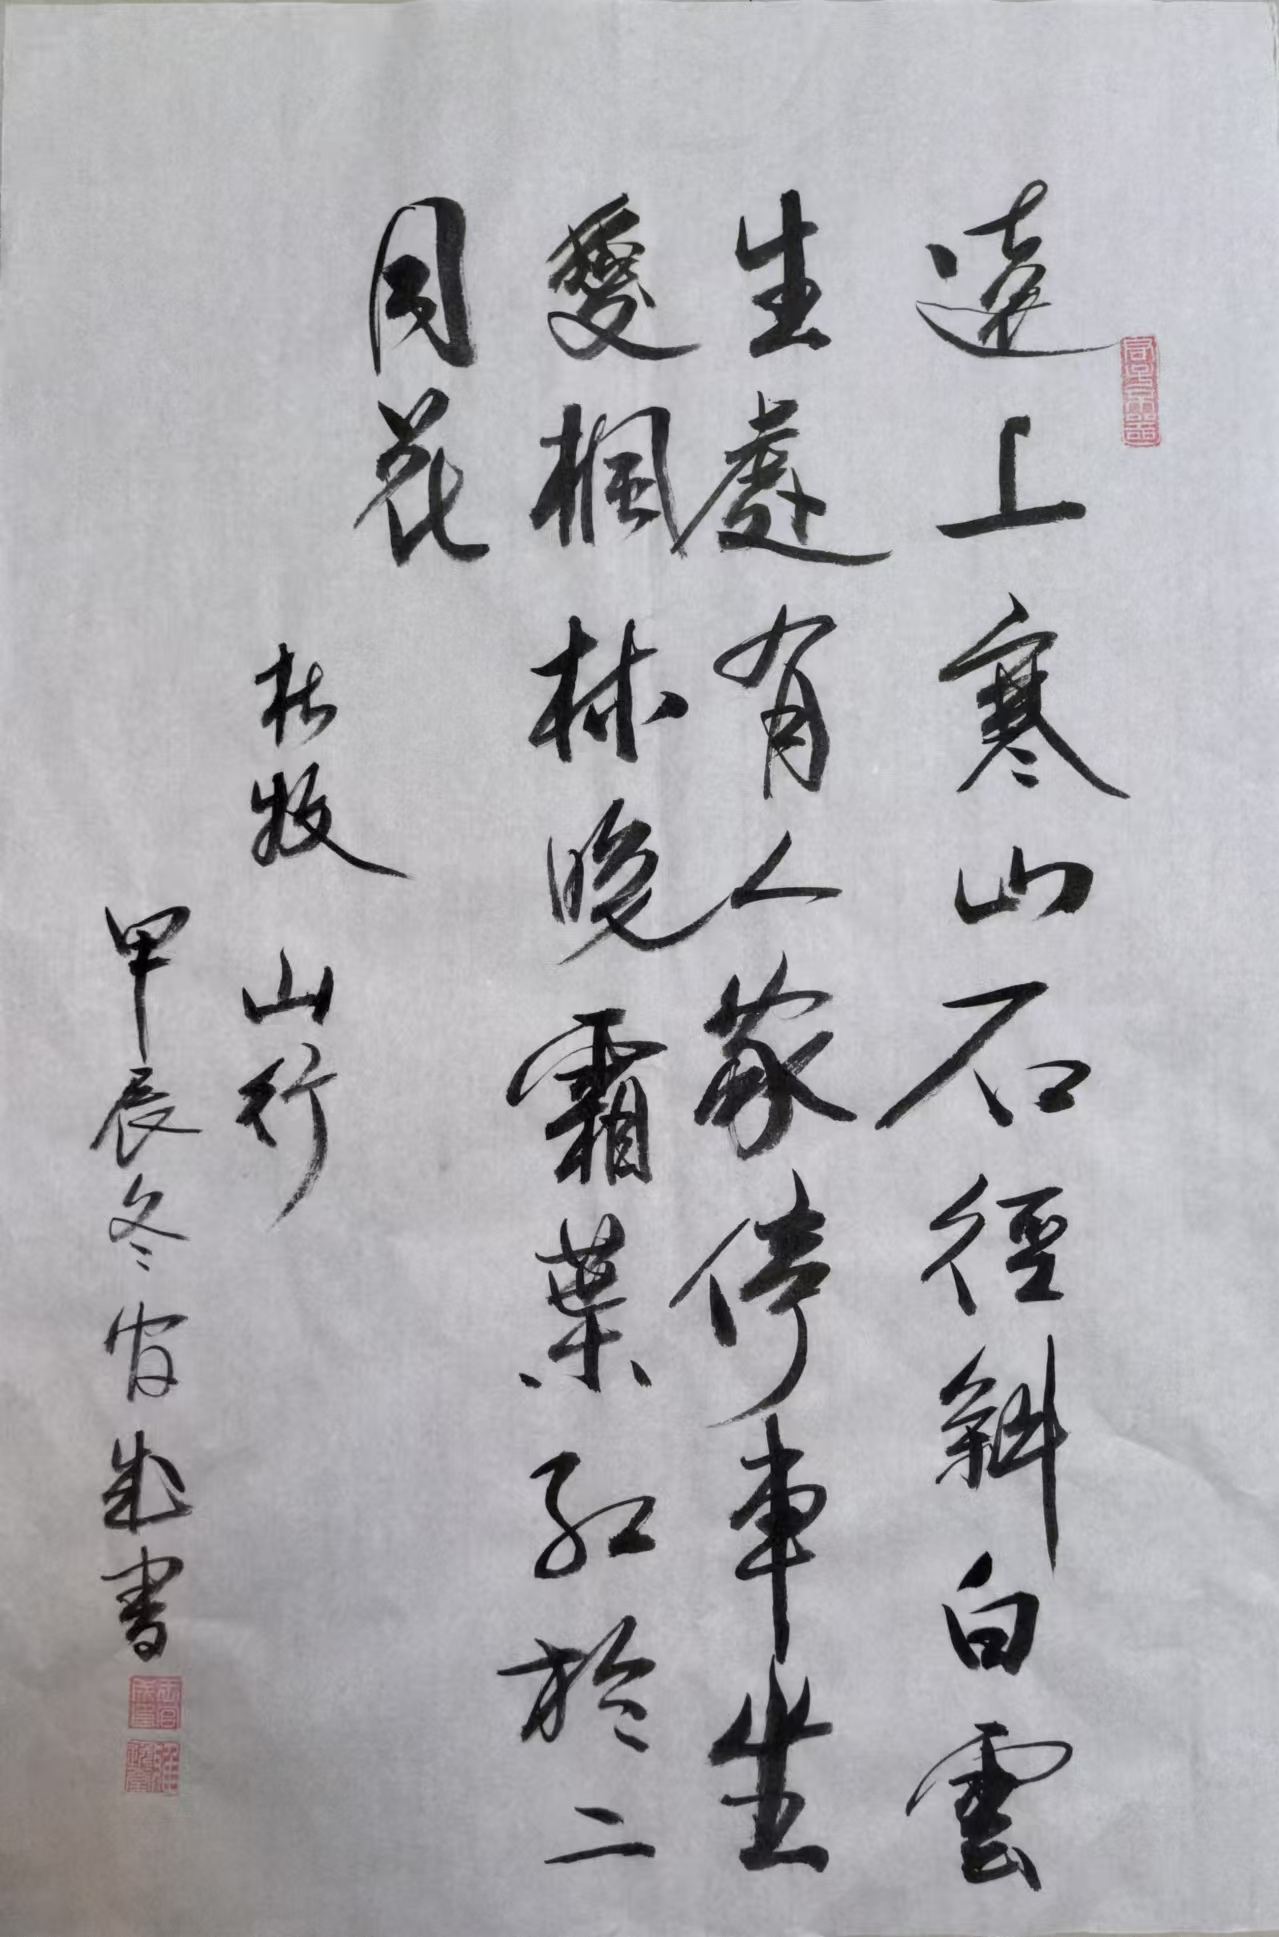 遠上寒山石徑斜白雲
生處有人家停車坐
愛楓林晚霜葉紅於二
月花
杜牧 山行
甲辰冬官成書